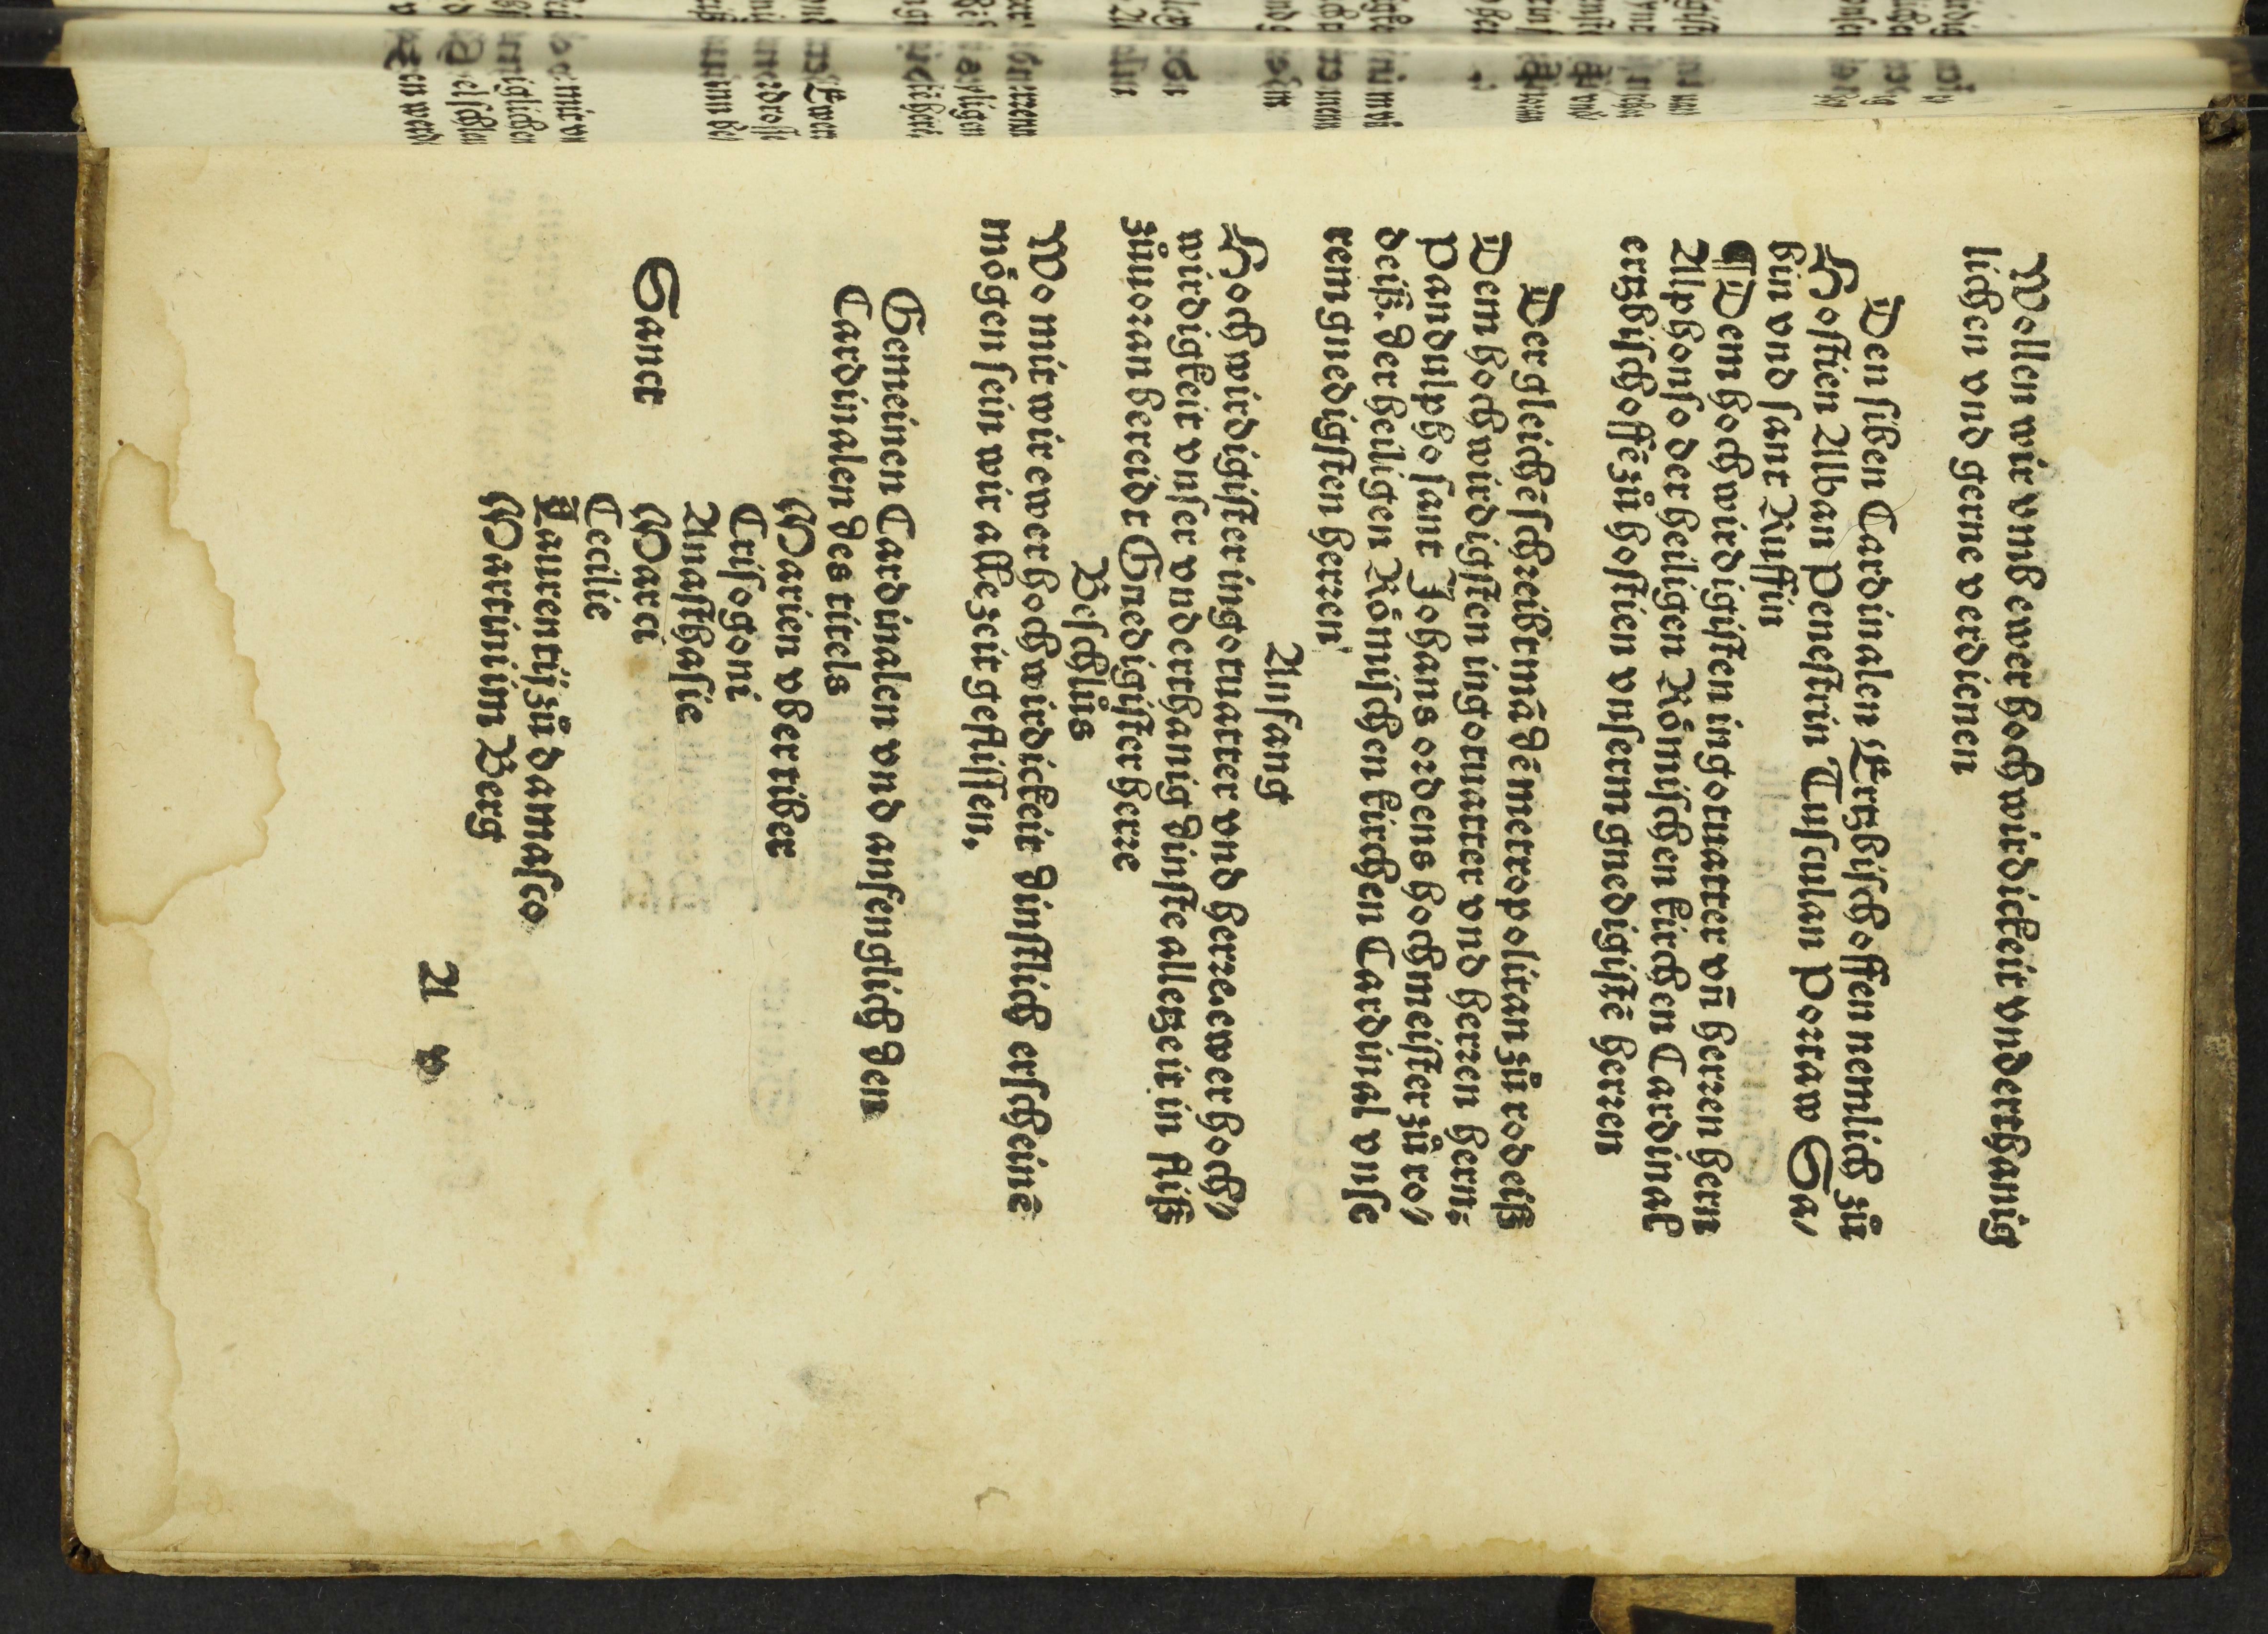 Wollen wir vmb ewer hochwirdickeit vnderthanig
lichen vnd gerne verdienen
Den siben Cardinalen Ertzbischoffen nemlich zů
Hostien Alban Penestrin Tusculan Portaw Sa/
bin vnd sant Ruffin
¶ Dem hochwirdigisten in got vatter vñ herren hern
Alphonso der heiligen Römischen kirchen Cardinal
ertzbischoffē zů hostien vnserm gnedigistē herren
Der gleichē schreibt mā dē metropolitan zů rodeiß
Dem hochwirdigsten in got vatter vnd herren hern:
Pandulpho sant Johans ordens hochmeister zů ro/
deiß. der heiligen Römischen kirchen Cardinal vnse
rem gnedigsten herren
Anfang
Hochwirdigister in got vatter vnd herre. ewer hoch/
wirdigkeit vnser vnderthanig dinste alle zeit in fliß
zůuoran bereidt Gnedigister herre
Beschlůs
Wo mit wir ewer hochwirdickeit dinstlich erscheinē
mögen sein wir alle zeit geflissen.
Gemeinen Cardinalen vnd anfenglich den
Cardinalen des titels
Marien vber tiber
Crisogoni
Anasthasie
Sanct Marci
Cecilie
Laurentij zů damasco
Martini im Berg
A v